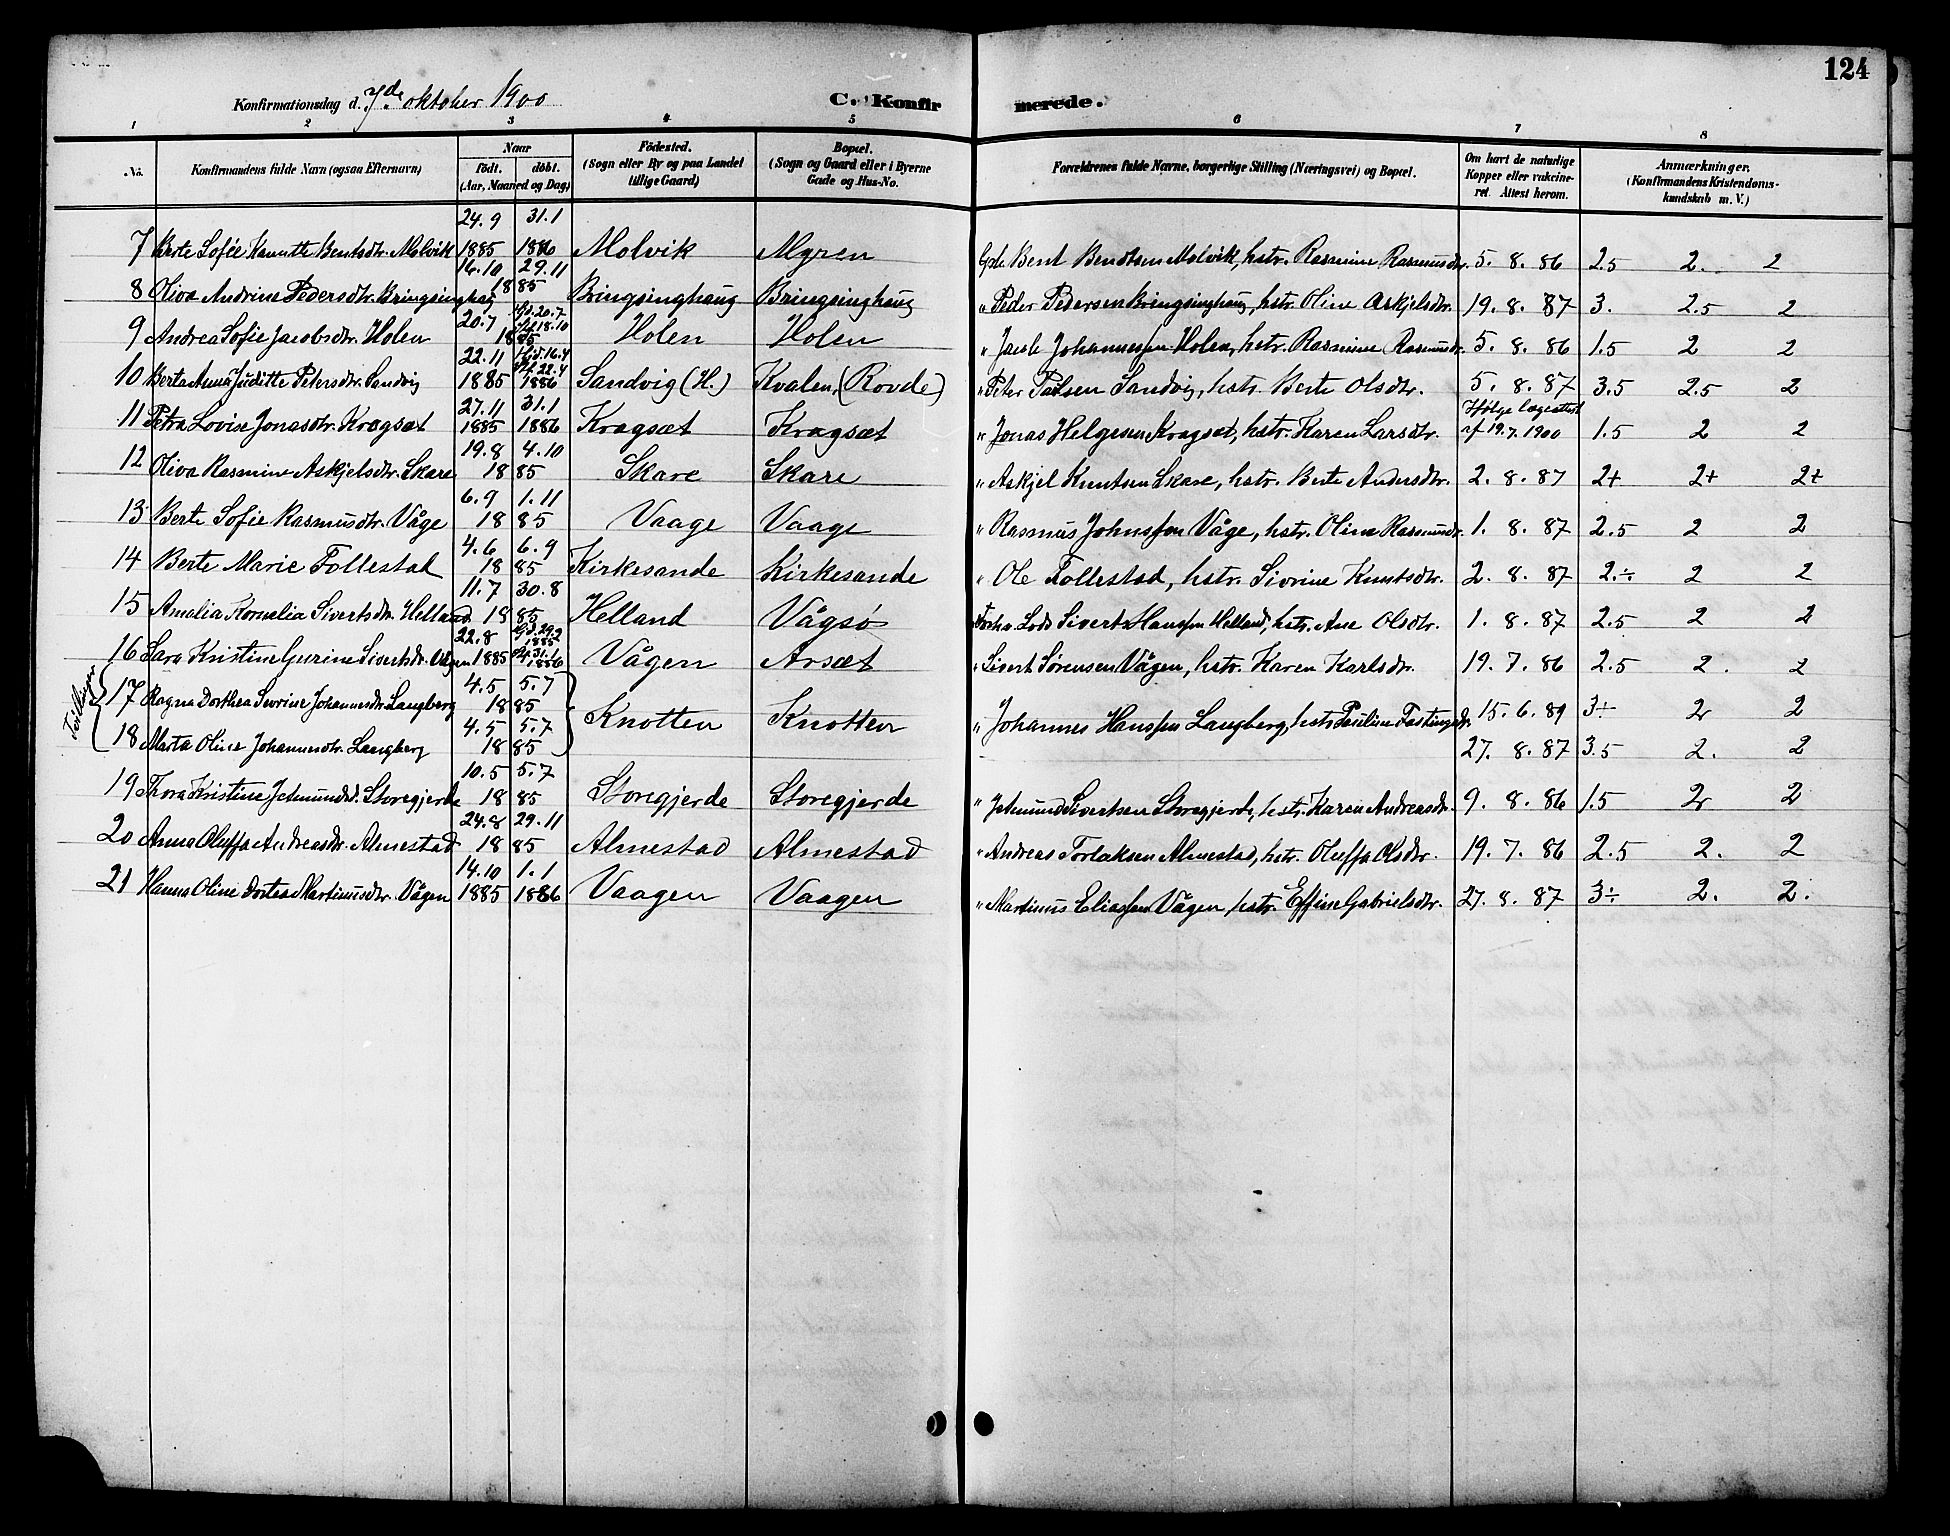 124
Konfirmationsdag d. 7de oktober 1900 C. Konfirmerede.
1 2 3 4 5 6 7 8
No. Konfirmandens fulde Navn (ogsaa Efternavn) Naar födt. döbt. (Aar, Maaned og Dag) Födested. (Sogn eller By og paa Landet tillige Gaard) Bopæl. (Sogn og Gaard eller i Byerne Gade og Hus-No. Forældrenes fulde Navne, borgerlige Stilling (Næringsvei) og Bopæl. Om havt de naturlige Kopper eller vakcineret. Attest herom. Anmærkninger. (Konfirmandens Kristendomskundskab m. V.)
7 Berte Sofie Kanutte Bentsdtr. Molvik 24.9 1885 31.1 1886 Molvik Myren Gbr. Bent Bendtsen Molvik, hstr. Rasmine Rasmusdr. 5. 8. 86 2.5 2. 2
8 Oliva Andrine Pedersdtr. Bringsinghaug 16.10 29.11 1885 Bringsinghaug Bringsinghaug " Peder Pedersen Bringsinghaug, hstr. Oline Askjelsdtr. 19. 8. 87 3. 2.5 2
9 Andrea Sofie Jacobsdtr. Holen 20.7 Hjd. 20.7 18.10 1885 Holen Holen " Jacob Johannessen Holen, hstr. Rasmine Rasmusdr. 5. 8. 86 1.5 2 2
10 Berta Anna Juditte Petersdtr. Sandvig 22.11 1885 Hjd. 16.4 22.4 1886 Sandvig (H.) Kvalen, (Rovde) " Peter Paulsen Sandvig, hstr. Berte Olsdtr. 5. 8. 87 3.5 2.5 2
11 Petra Lovise Jonasdtr. Kragsæt 27.11 1885 31.1 1886 Kragsæt Kragsæt " Jonas Helgesen Kragsæt, hstr. Karen Larsdtr. Ifølge lægeattest af 19.7.1900 1.5 2 2
12 Oliva Rasmine Askjelsdtr. Skare 19.8 4.10 1885 Skare Skare " Askjel Knutsen Skare, hstr. Berte Andersdtr. 2. 8. 87 2+ 2+ 2+
13 Berte Sofie Rasmusdtr. Våge 6.9 1.11 1885 Vaage Vaage " Rasmus Johnssen Våge, hstr. Oline Rasmusdr. 1. 8. 87 2.5 2 2
14 Berte Marie Follestad 4.6 6.9 1885 Kirkesande Kirkesande " Ole Follestad, hstr. Sivrine Knutsdtr. 2. 8. 87 2.÷ 2 2
15 Amalia Kornelia Sivertsdtr. Helland 11.7 30.8 1885 Helland Vågsø Lods Sivert Hanssen Helland, hstr. Ane Olsdtr. 1. 8. 87 2.5 2 2
16 Sara Kristine Gurine Sivertsdr. Vågen 22.8 1885 Hjd. 29.2 1885 31.1 1886 Vågen Årsæt " Sivert Sørensen Vågen, hstr. Karen Karlsdtr. 19. 7. 86 2.5 2. 2
Tvillinger
17 Ragna Dorthea Sevrine Johannesdtr. Langberg 4.5 5.7 1885 Knotten Knotten " Johannes Hanssen Langberg, hstr. Pauline Fastingsdr. 15. 6. 89 3÷ 2 2
18 Marta Oline Johannesdtr. Langberg 4.5 5.7 1885 27. 8. 87 3.5 2. 2
19 Thora Kristine Jetmundsd. Storegjerde 10.5 5.7 1885 Storegjerde Storegjerde " Jetmund Sivertsen Storegjerde, hstr. Karen Andreasdr. 9. 8. 86 1.5 2 2
20 Anna Oluffa Andreasdtr. Almestad 24.8 29.11 1885 Almestad Almestad " Andreas Torlaksen Almestad, hstr. Oluffa Olsdtr. 19. 7. 86 2.5 2. 2
21 Hanna Oline Dortea Martinusdtr. Vågen 14.10 1885 1.1 1886 Vaagen Vaagen " Martinus Eliassen Vågen hstr. Effine Gabrielsdtr. 27. 8. 87 3÷ 2. 2.